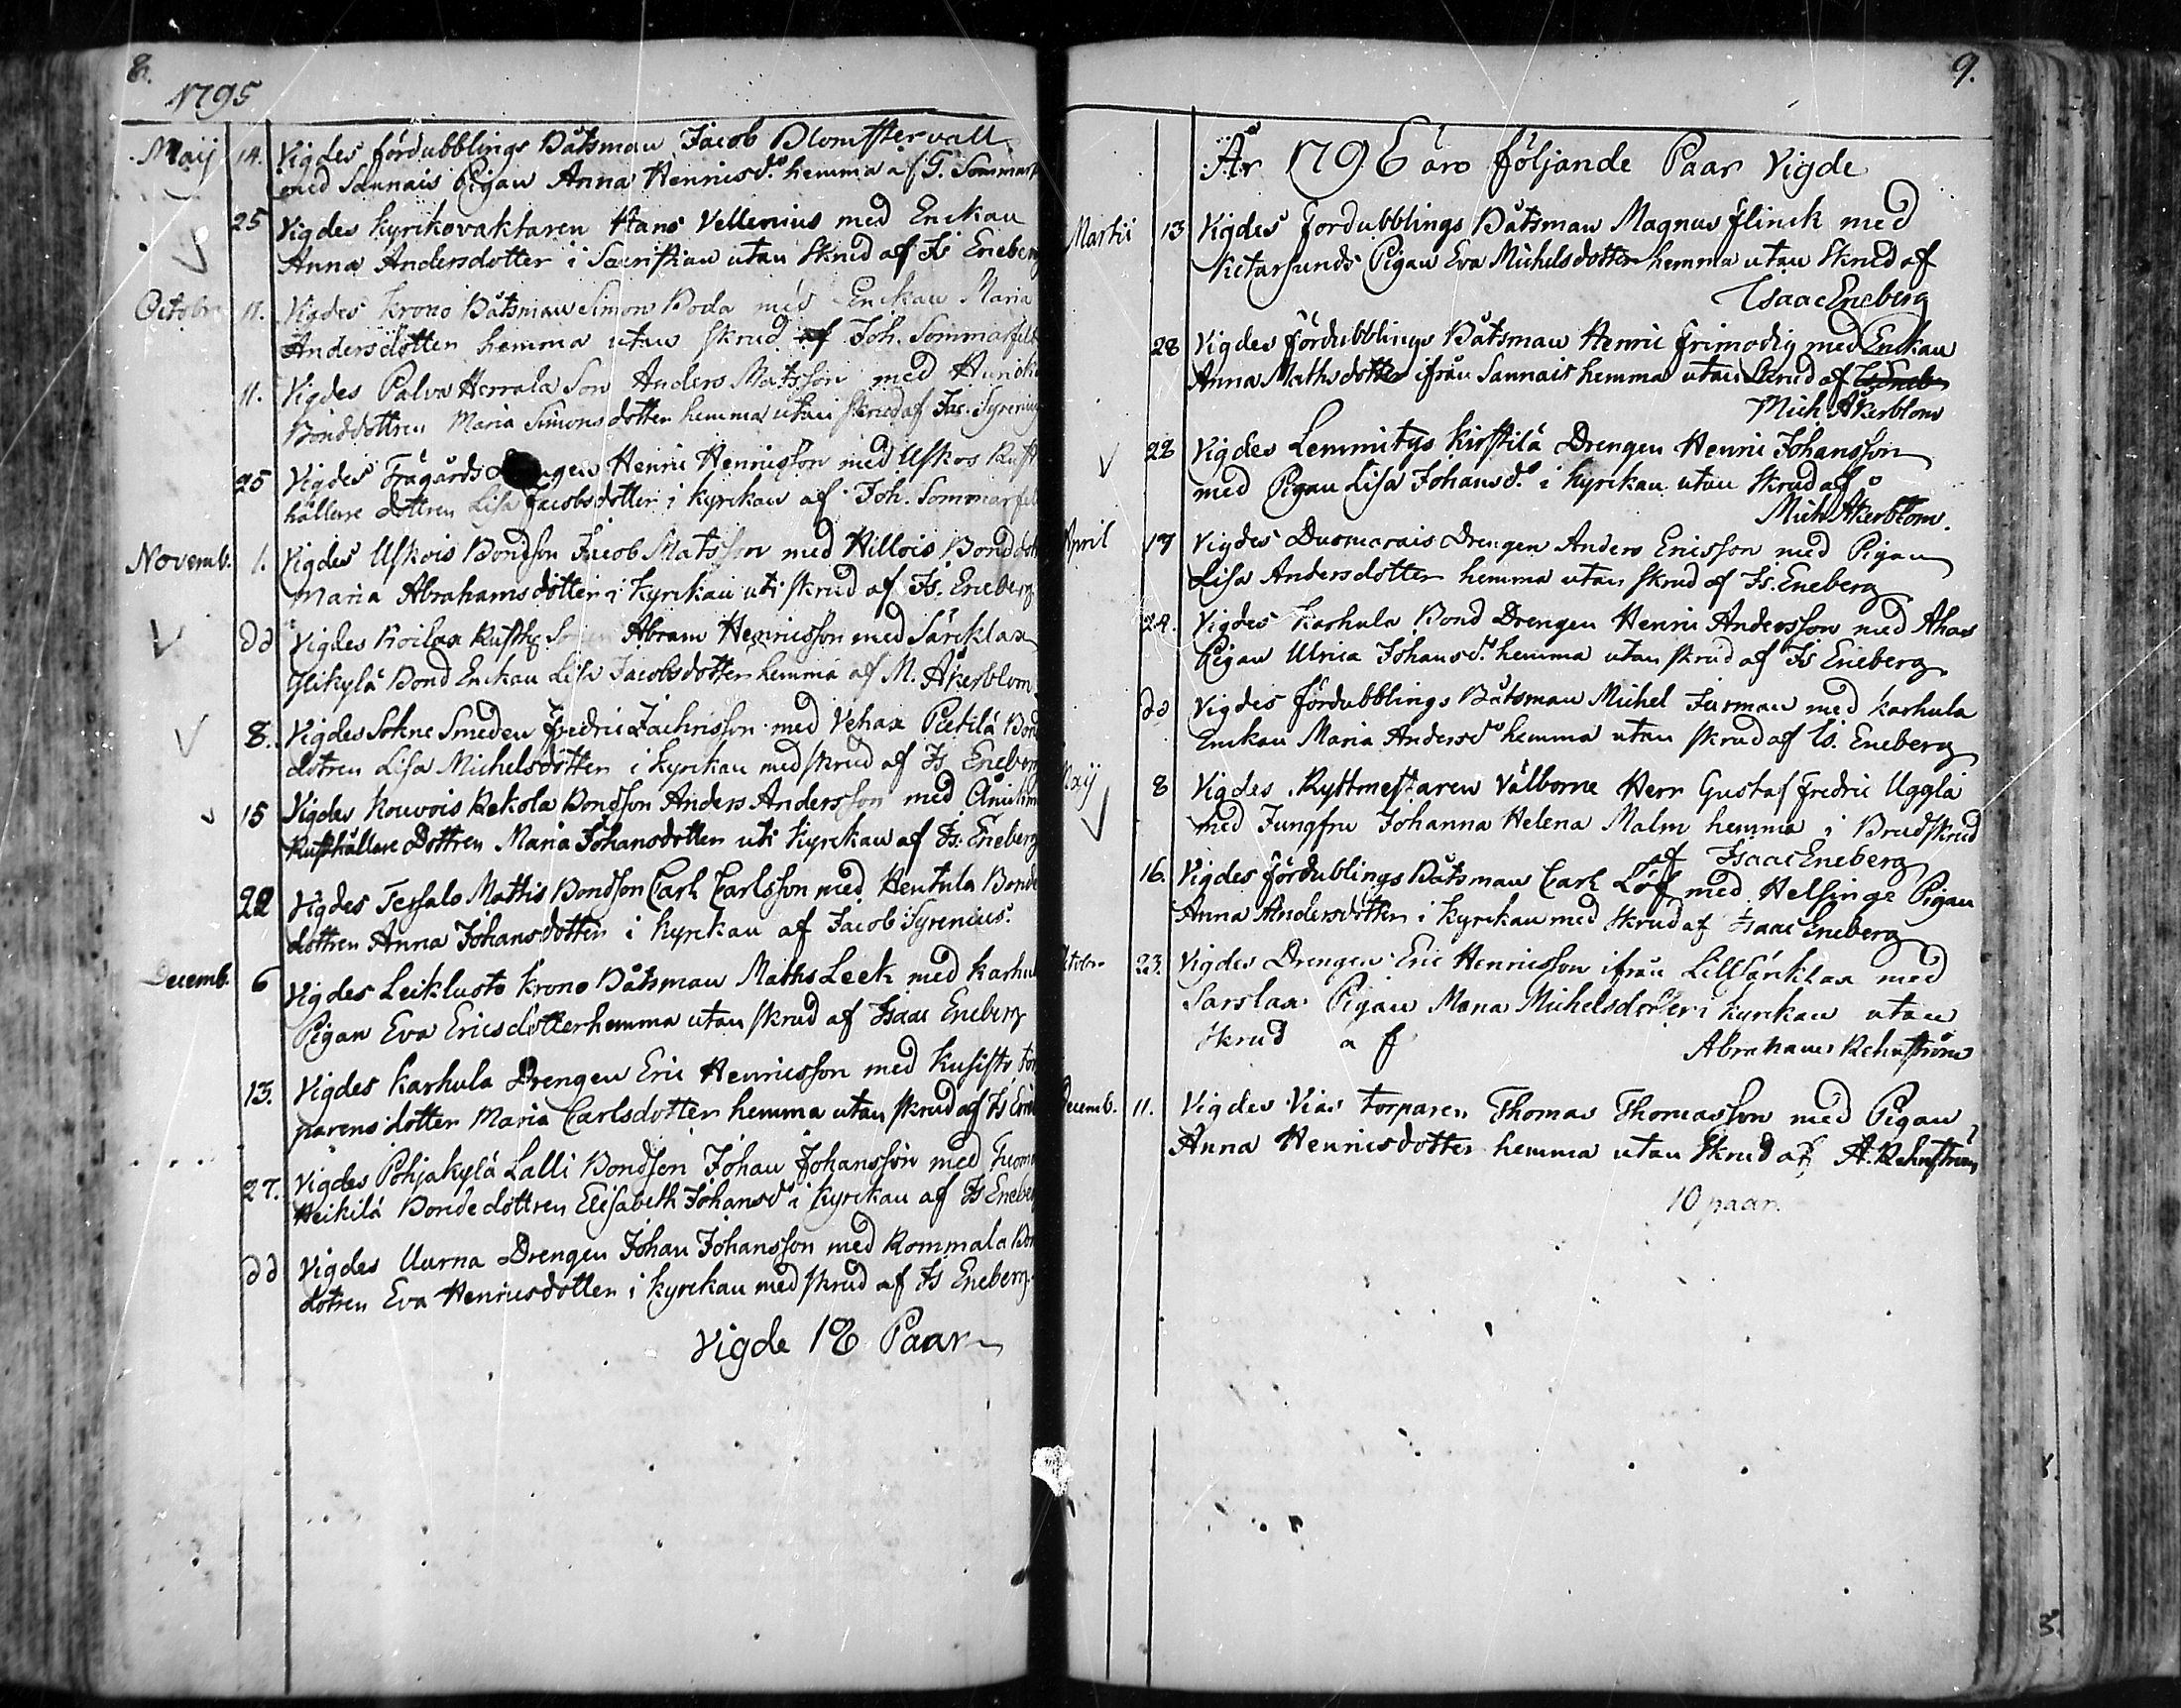 8.
1795
Maij 14. Vigdes fördubblings Båtsman Jacob Blomstervall
med Sannais Pigan Anna Henricsd:r hemma af G. Sommar
25 Vigdes Kyrkovaktaren Hans Vellenius med Enckan
Anna Andersdotter i Sacristian utan Skrud af Is Eneberg
Octobr 11. Vigdes Krono Båtsman Simon Boda med Enckan Maria
Andersdotter hemma utan skrud af Joh. Sommarfelt
11. Vigdes Palva Herrala Son Anders Matsson med
Bonddottren Maria Simonsdotter hemma utan skrud af Jac. Syrenius
25 Vigdes Henric Henricsson med Uskos Rust
hållare dottren Lisa Jacobsdotter i Kyrckan af Joh. Sommarfel
Novemb. 1. Vigdes Uskois Bondson Jacob Matsson med Hillois Bonddot
Maria Abrahamsdotter i Kyrckan uti skrud af Is. Eneberg
dd Vigdes Koilax Rusth: Sonen Abram Henricsson med Särcklax
Ylikylä Bond Enckan Lisa Jacobsdotter hemma af M. Åkerblom
8. Vigdes Sokne Smeden Fredric Zachrisson med Vehax Pietilä Bond
dotren Lisa Michelsdotter i Kyrckan med skrud af Is Eneberg
15 Vigdes Kouvois Rekola Bondson Anders Andersson med
Rusthållare Dottren Maria Johansdotter uti Kyrckan af Is. Eneberg
22 Vigdes Tersalo Mattis Bondson Carl Carlsson med Hentula Bonde
dottren Anna Johansdotter i Kyrckan af Jacob Syrenius.
Decemb. 6 Vigdes Leikluoto Krono Båtsman Maths Leek med Karhul
Pigan Eva Ericsdotter hemma utan skrud af Isaac Eneberg
13. Vigdes Karhula Drengen Eric Henricsson med Kusisto tor
parens dotter Maria Carlsdotter hemma utan skrud af Is Ene
27. Vigdes Pohjakylä Lalli Bondson Johan Johansson med
Heikilä Bondedottren Elisabeth Johansd:r i Kyrckan af Is Eneber
dd Vigdes Uurna Drengen Johan Johansson med Kommala Bon
dotren Eva Henricsdotter i Kyrckan med skrud af Is Eneberg.
Vigde 18 Paar
9.
År 1796 äro följande Paar Vigde
Martii 13 Vigdes fördubblings Båtsman Magnus Flinck med
Kitarsunds Pigan Eva Michelsdotter hemma utan Skrud af
Isaac Eneberg
28 Vigdes fördubblings Båtsman Henric Frimodig med Enckan
Anna Mathsdotter ifrån Sannais hemma utan Skrud af Is Eneb
Mich Åkerblom
28 Vigdes Lemmitys Kirstilä Drengen Henric Johansson
med Pigan Lisa Johansd:r i Kyrckan utan Skrud af
Mich Åkerblom.
April 17 Vigdes Drengen Anders Ericsson med Pigan
Lisa Andersdotter hemma utan skrud af Is. Eneberg
24. Vigdes Karhula Bond Drengen Henric Andersson med Ahas
Pigan Ulrica Johansd:r hemma utan skrud af Is Eneberg
dd Vigdes fördubblings Båtsman Michel Furman med Karhula
Enckan Maria Andersd:r hemma utan skrud af Is. Eneberg
Maij 8 Vigdes Ryttmestaren Välborne Herr Gustaf Fredric Uggla
med Jungfru Johanna Helena Malm hemma i Brudskrud
af Isaac Eneberg
16. Vigdes fördublings Båtsman Carl Löf med Helsinge Pigan
Anna Andersdotter i Kyrckan med Skrud af Isaac Eneberg
Octobr 23. Vigdes Drengen Eric Henricsson ifrån Lillsärklax med
Sarslax Pigan Maria Michelsdotter i Kyrckan utan
skrud af Abraham Rehnström
Decemb. 11. Vigdes Vias torparen Thomas Thomasson med Pigan
Anna Henricsdotter hemma utan Skrud af A. Rehnström
10 paar.